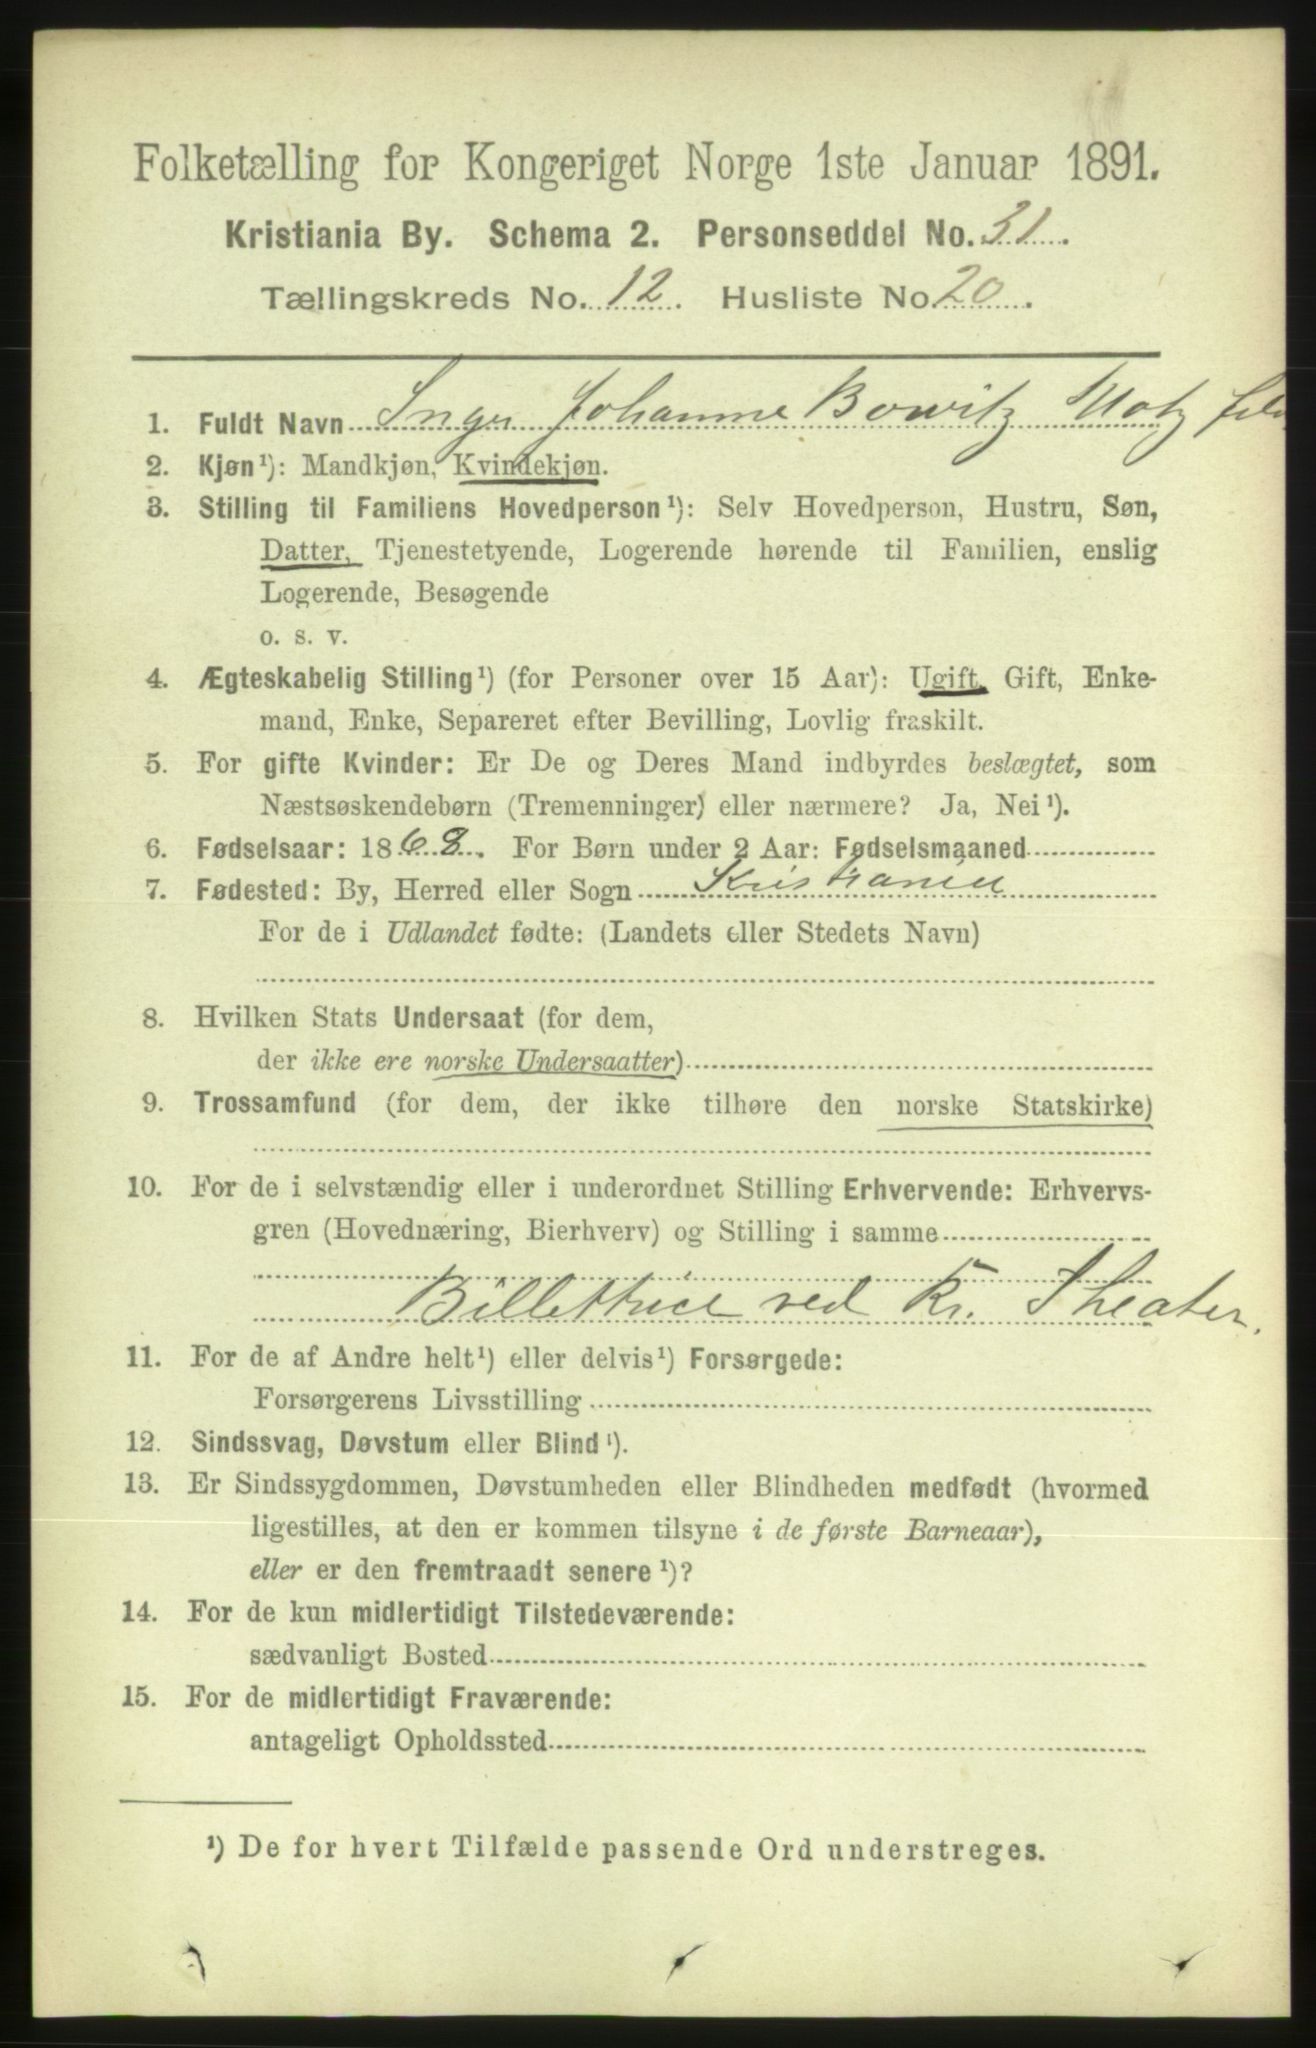 Folketælling for Kongeriget Norge 1ste Januar 1891.
Kristiania By. Schema 2. Personseddel No. 31.
Tællingskreds No. 12. Husliste No 20.
1. Fuldt Navn Inger Johanne Bowitz
2. Kjøn¹): Mandkjøn, Kvindekjøn.
3. Stilling til Familiens Hovedperson¹): Selv Hovedperson, Hustru, Søn,
Datter, Tjenestetyende, Logerende hørende til Familien, enslig
Logerende, Besøgende
o. s. v.
4. Ægteskabelig Stilling¹) (for Personer over 15 Aar): Ugift, Gift, Enke-
mand, Enke, Separeret efter Bevilling, Lovlig fraskilt.
5. For gifte Kvinder: Er De og Deres Mand indbyrdes beslægtet, som
Næstsøskendebørn (Tremenninger) eller nærmere? Ja, Nei¹).
6. Fødselsaar: 1868. For Børn under 2 Aar: Fødselsmaaned
7. Fødested: By, Herred eller Sogn Kristiania
For de i Udlandet fødte: (Landets eller Stedets Navn)
8. Hvilken Stats Undersaat (for dem,
der ikke ere norske Undersaatter)
9. Trossamfund (for dem, der ikke tilhøre den norske Statskirke)
10. For de i selvstændig eller i underordnet Stilling Erhvervende: Erhvervs-
gren (Hovednæring, Bierhverv) og Stilling i samme
Billettrice ved Kr. Theater.
11. For de af Andre helt¹) eller delvis¹) Forsørgede:
Forsørgerens Livsstilling
12. Sindssvag, Døvstum eller Blind¹).
13. Er Sindssygdommen, Døvstumheden eller Blindheden medfødt (hvormed
ligestilles, at den er kommen tilsyne i de første Barneaar),
eller er den fremtraadt senere¹)?
14. For de kun midlertidigt Tilstedeværende:
sædvanligt Bosted
15. For de midlertidigt Fraværende:
antageligt Opholdssted
¹) De for hvert Tilfælde passende Ord understreges.